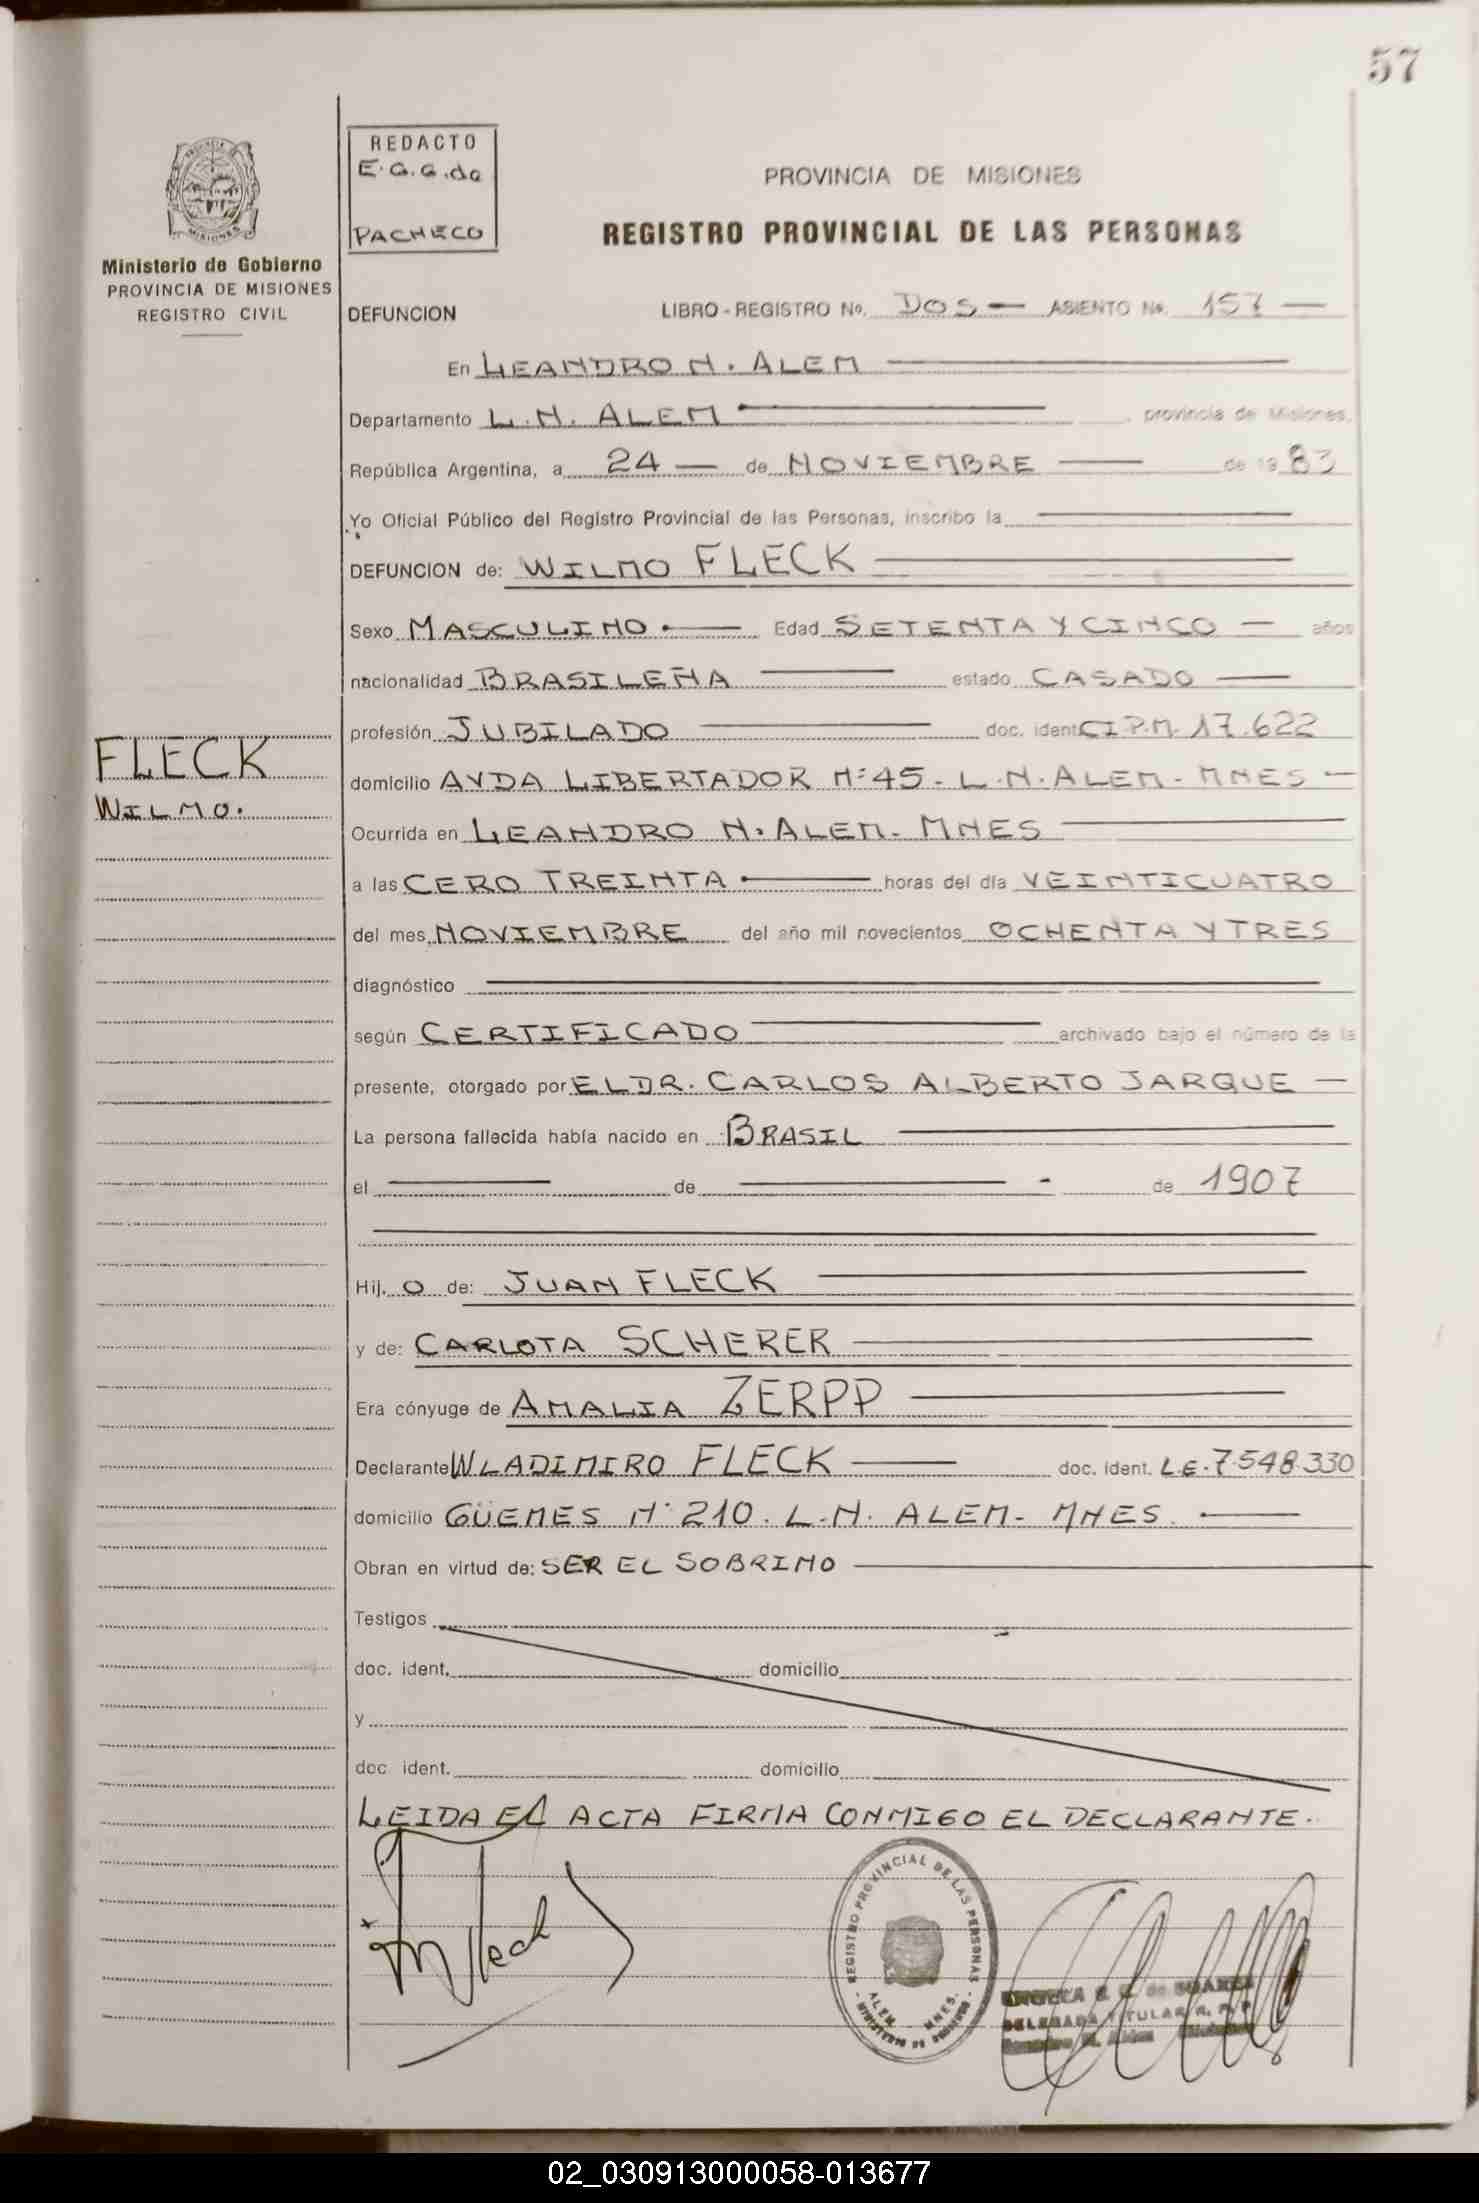 57
REDACTO
E.G.G. de
PACHECO
PROVINCIA DE MISIONES
REGISTRO PROVINCIAL DE LAS PERSONAS
Ministerio de Gobierno
PROVINCIA DE MISIONES
REGISTRO CIVIL
DEFUNCION LIBRO - REGISTRO No. DOS — ASIENTO No. 157 —
En LEANDRO N. ALEM
Departamento L.N. ALEM provincia de Misiones,
República Argentina, a 24 — de NOVIEMBRE — de 19 83
Yo Oficial Público del Registro Provincial de las Personas, inscribo la
DEFUNCION de: WILMO FLECK
Sexo MASCULINO . — Edad SETENTA Y CINCO — años
nacionalidad BRASILEÑA — estado CASADO —
profesión JUBILADO — doc. ident. CI.P.M. 17.622
FLECK
WILMO.
domicilio AVDA LIBERTADOR Nº 45 - L.N. ALEM - MNES —
Ocurrida en LEANDRO N. ALEM - MNES
a las CERO TREINTA — horas del día VEINTICUATRO
del mes NOVIEMBRE del año mil novecientos OCHENTA Y TRES
diagnóstico
según CERTIFICADO — archivado bajo el número de la
presente, otorgado por EL DR. CARLOS ALBERTO JARQUE —
La persona fallecida había nacido en BRASIL
el — de — de 1907
Hij. O de: JUAN FLECK
y de: CARLOTA SCHERER
Era cónyuge de AMALIA ZERPP
Declarante WLADIMIRO FLECK — doc. ident. L.E. 7.548.330
domicilio GÜEMES Nº 210. L.N. ALEM - MNES. —
Obran en virtud de: SER EL SOBRINO
Testigos
doc. ident. domicilio
y
doc ident. domicilio
LEIDA EL ACTA FIRMA CONMIGO EL DECLARANTE.
REGISTRO PROVINCIAL DE LAS PERSONAS
ALEM - MNES.
MINISTERIO DE GOBIERNO
S. G. de SUAREZ
DELEGADA TITULAR R. P. P.
02_030913000058-013677